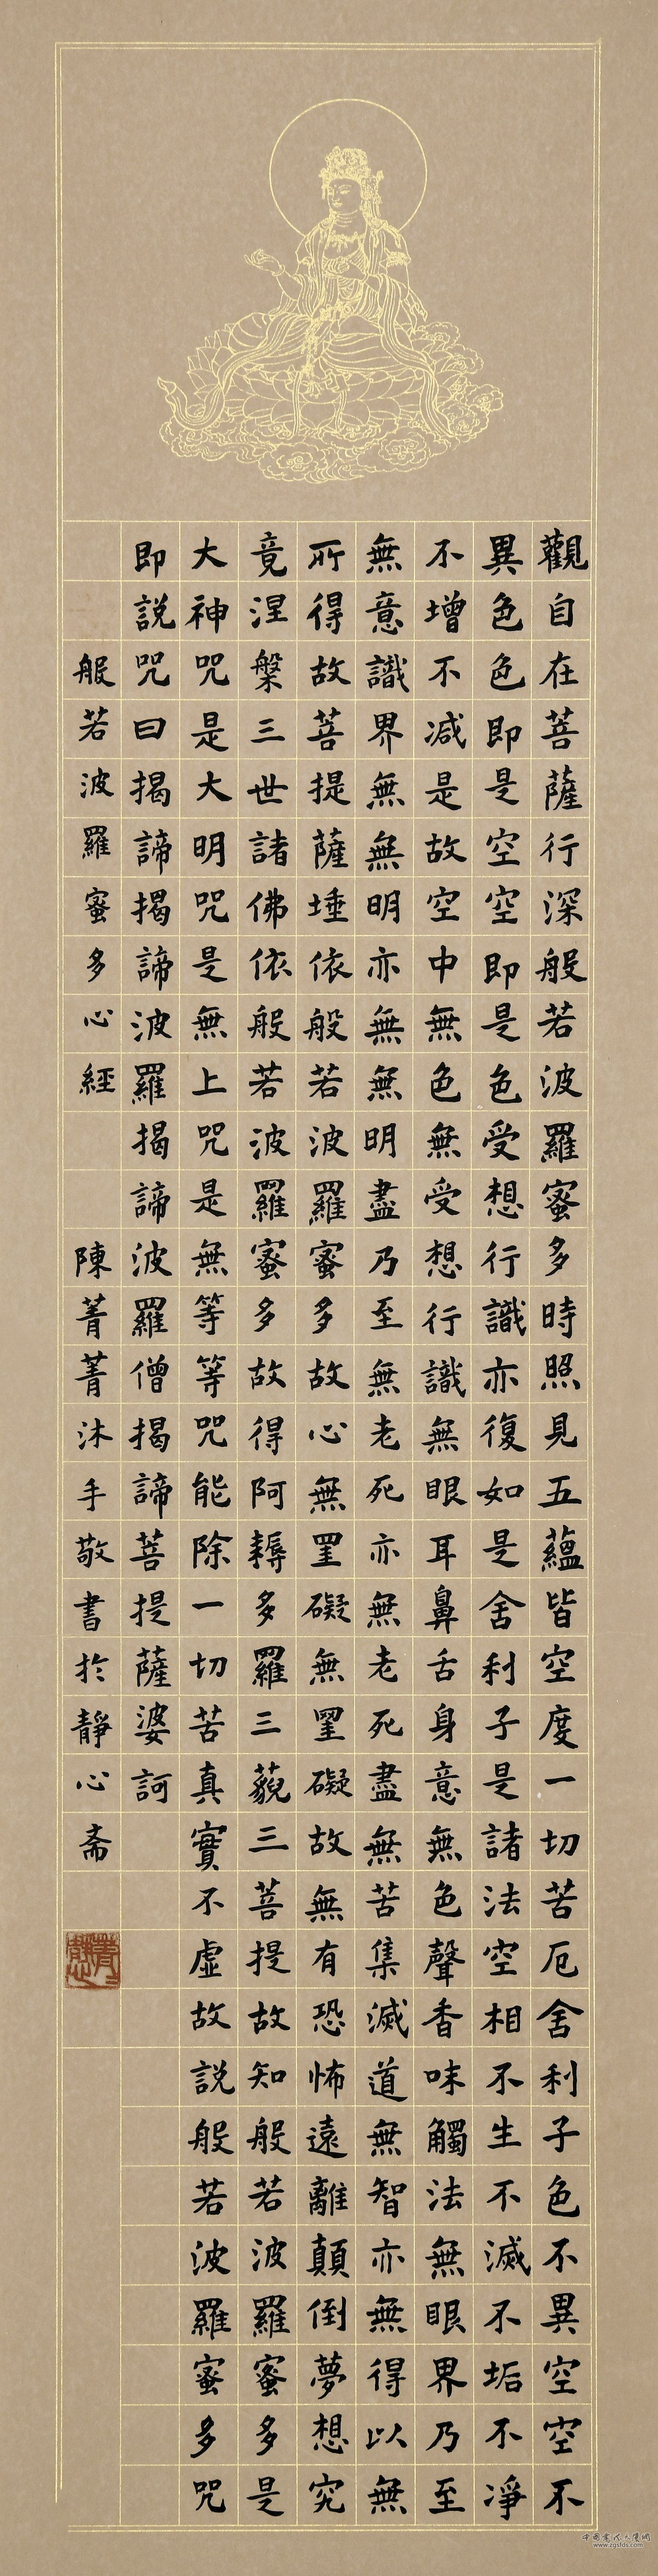 觀自在菩薩行深般若波羅蜜多時照見五蘊皆空度一切苦厄舍利子色不異空空不
異色色即是空空即是色受想行識亦復如是舍利子是諸法空相不生不滅不垢不淨
不增不减是故空中無色無受想行識無眼耳鼻舌身意無色聲香味觸法無眼界乃至
無意識界無無明亦無無明盡乃至無老死亦無老死盡無苦集滅道無智亦無得以無
所得故菩提薩埵依般若波羅蜜多故心無罣礙無罣礙故無有恐怖遠離顛倒夢想究
竟涅槃三世諸佛依般若波羅蜜多故得阿耨多羅三藐三菩提故知般若波羅蜜多是
大神咒是大明咒是無上咒是無等等咒能除一切苦真實不虛故説般若波羅蜜多咒
即説咒曰揭諦揭諦波羅揭諦波羅僧揭諦菩提薩婆訶
般若波羅蜜多心經 陳菁菁沐手敬書於靜心斋
www.zgsfds.com